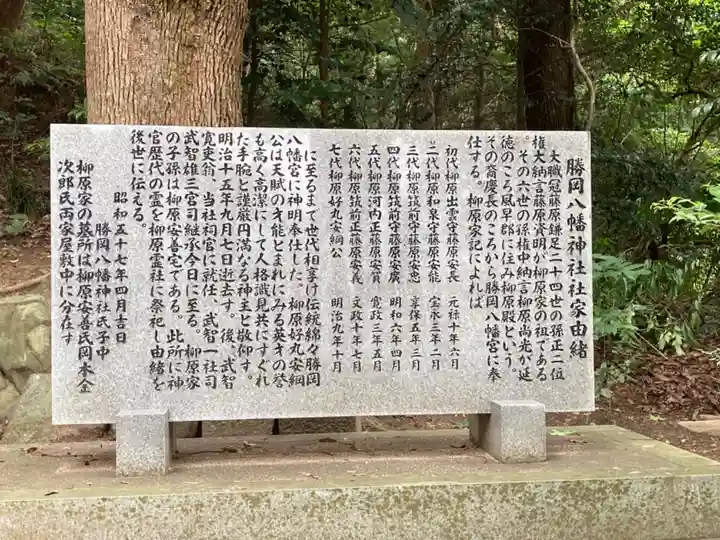 勝岡八幡神社社家由緒
大職冠藤原鎌足二十四世の孫正二位
権大納言藤原資明が柳原家の祖である
。その六世の孫権中納言柳原尚光が延
徳のころ風早郡に住み柳原殿という。
その裔慶長のころから勝岡八幡宮に奉
仕する。柳原家記によれば
初代柳原出雲守藤原安長 元禄十年六月
二代柳原和泉守藤原安能 宝永三年二月
三代柳原筑前守藤原安忠 享保五年三月
四代柳原筑前守藤原安廣 明和六年四月
五代柳原河内正藤原安貞 寛政三年五月
六代柳原筑前守藤原安義 文政十年七月
七代柳原好丸安綱公 明治九年十月
に至るまで世代相享け伝統綿々勝岡
八幡宮に神明奉仕した。柳原好丸安綱
公は天賦の才能とまれにみる英才の誉
も高く高潔にして人格識見共にすぐれ
た手腕と謹厳円満なる神主と敬仰す。
明治十五年九月七日逝去す。後、武智
寛吏翁、当社祠官に就任、武智一社司
武智雄三宮司継承今日に至る。柳原家
の子孫は柳原安善宅である。此所に神
官歴代の霊を柳原霊社に祭祀し由緒を
後世に伝える。
昭和五十七年四月吉日
勝岡八幡神社氏子中
柳原家の墓所は柳原安善氏岡本金
次郎氏両家屋敷中に分在す